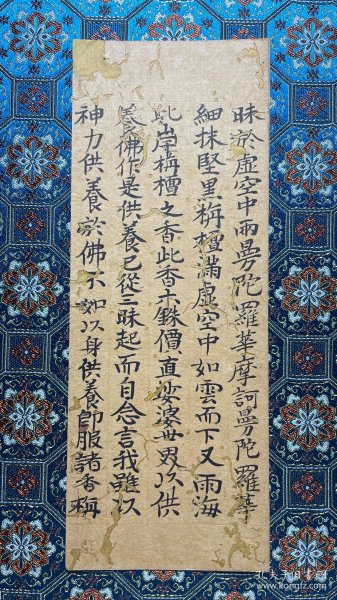 昧於虛空中雨曼陀羅華摩訶曼陀羅華
細抹堅黑栴檀滿虛空中如雲而下又雨海
此岸栴檀之香此香六銖價直娑婆世界以供
養佛作是供養已從三昧起而自念言我雖以
神力供養於佛不如以身供養即服諸香栴